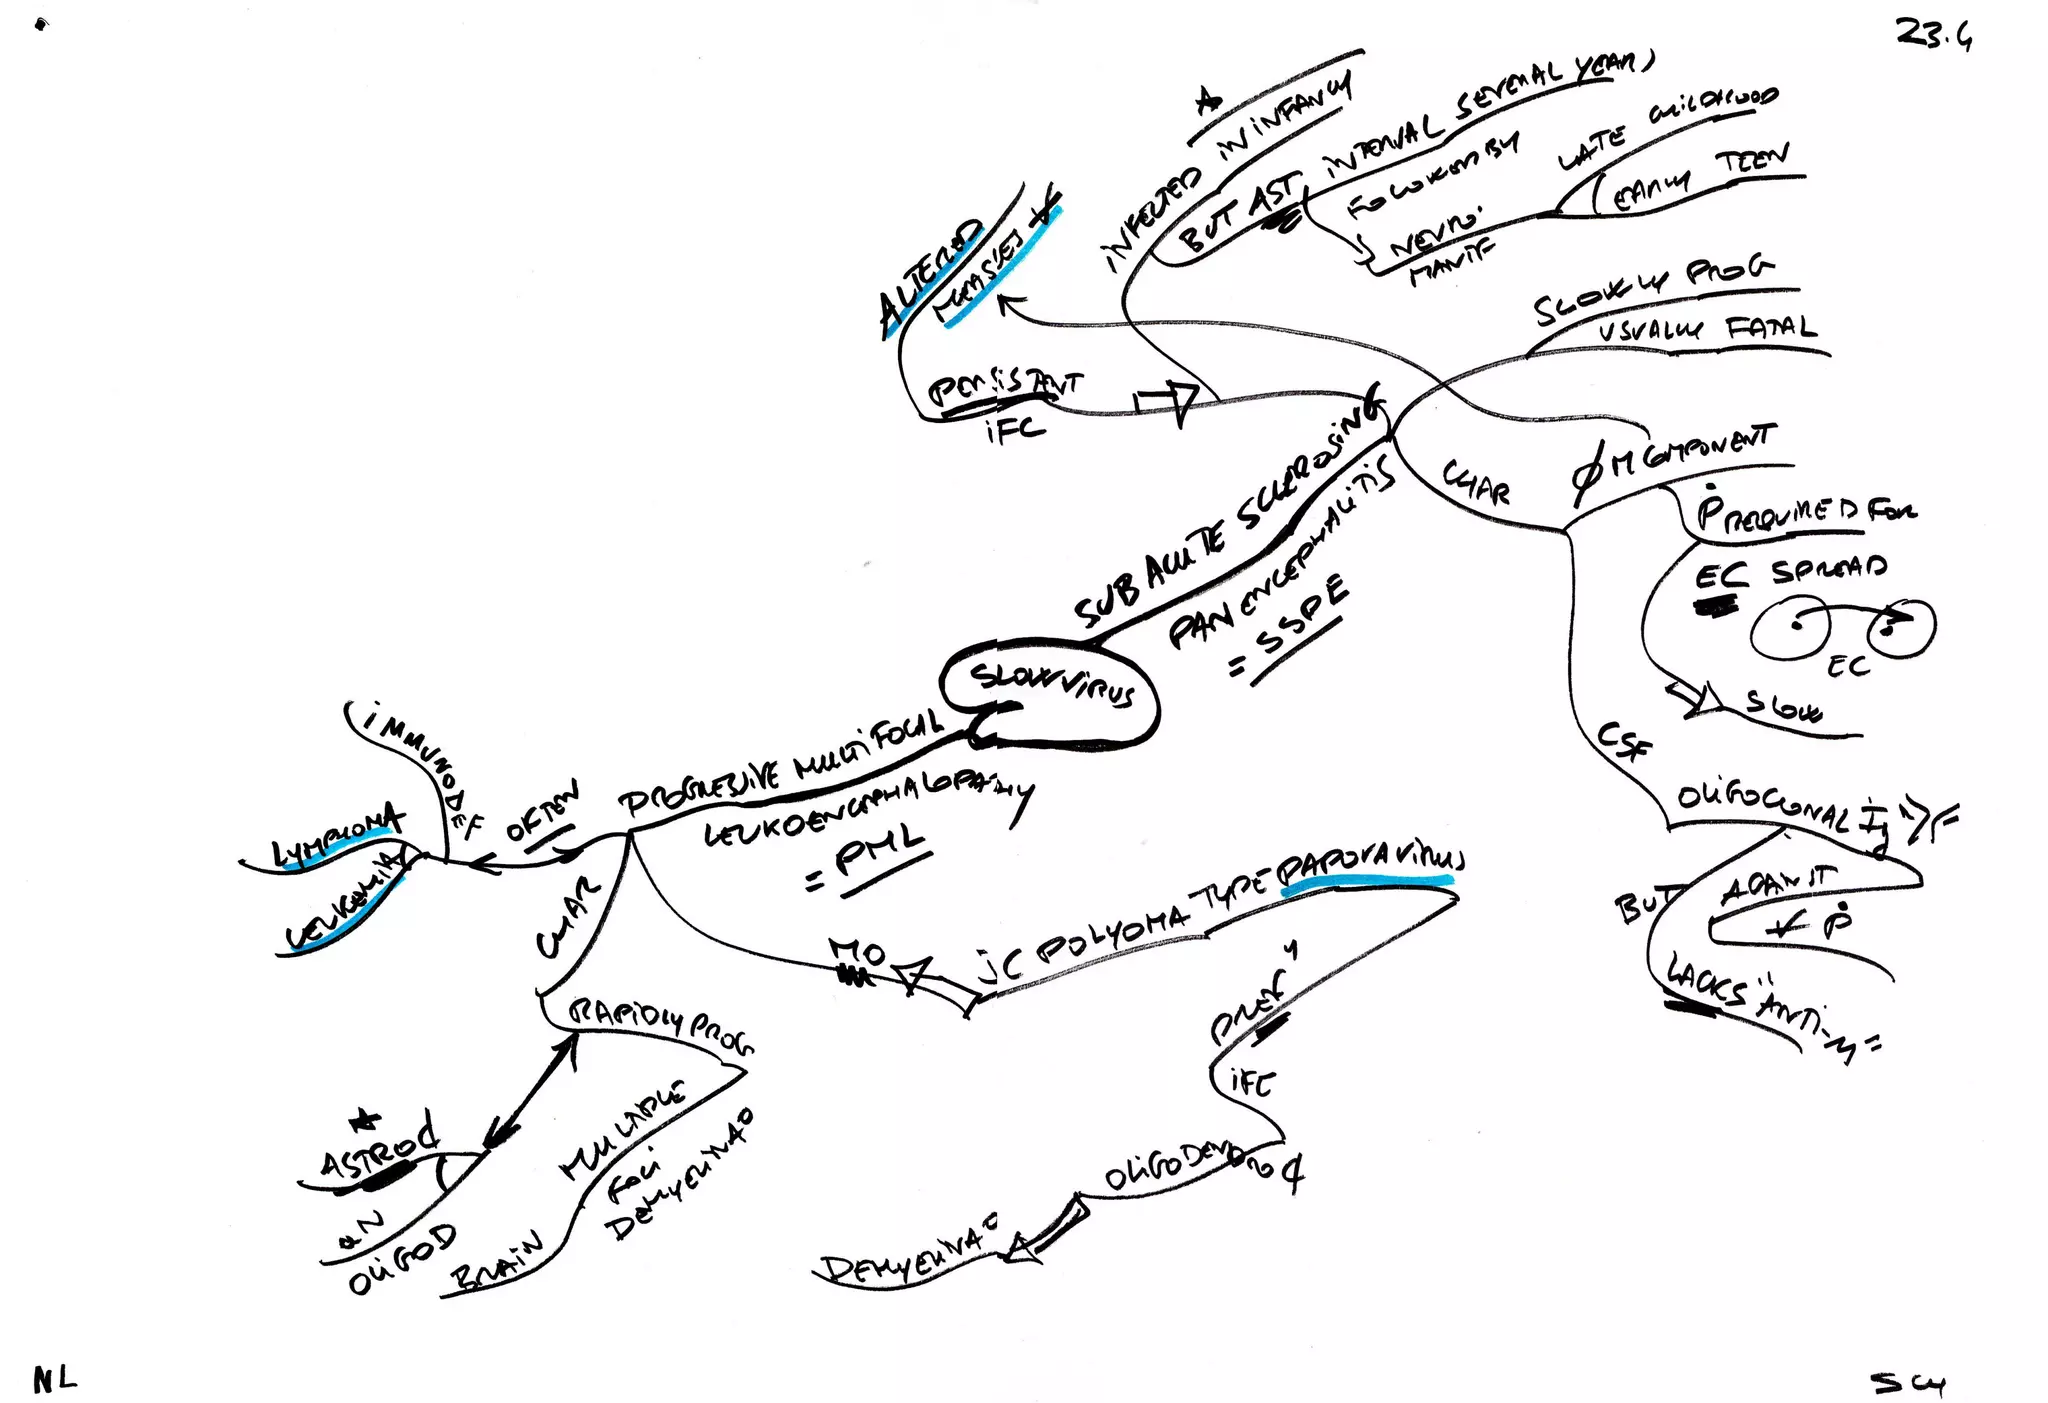 23.4
INFECTED IN INFANCY
BUT AST. INTERVAL SEVERAL YEARS
FOLLOWED BY
NEURO.
MANIF
LATE CHILDHOOD
EARLY TEEN
ALTERED
MEASLES
PERSISTENT
IFC
SLOWLY PROG
USUALLY FATAL
SUBACUTE SCLEROSING
PANENCEPHALITIS
= SSPE
CHAR
M COMPONENT
REQUIRED FOR
EC SPREAD
EC
SLOW
CSF
OLIGOCLONAL Ig
AGAINST
BUT
LACKS "ANTI-M"
SLOW VIRUS
PROGRESSIVE MULTIFOCAL
LEUKOENCEPHALOPATHY
= PML
OFTEN
IMMUNODEF
LYMPHOMA
LEUKEMIA
CHAR
RAPIDLY PROG
MULTIPLE
FOCI
DEMYELINAO
BRAIN
ASTROC
OLIGOD
MO
JC POLYOMA TYPE PAPOVAVIRUS
PREF
IFC
OLIGODENDROC
DEMYELINAO
NL